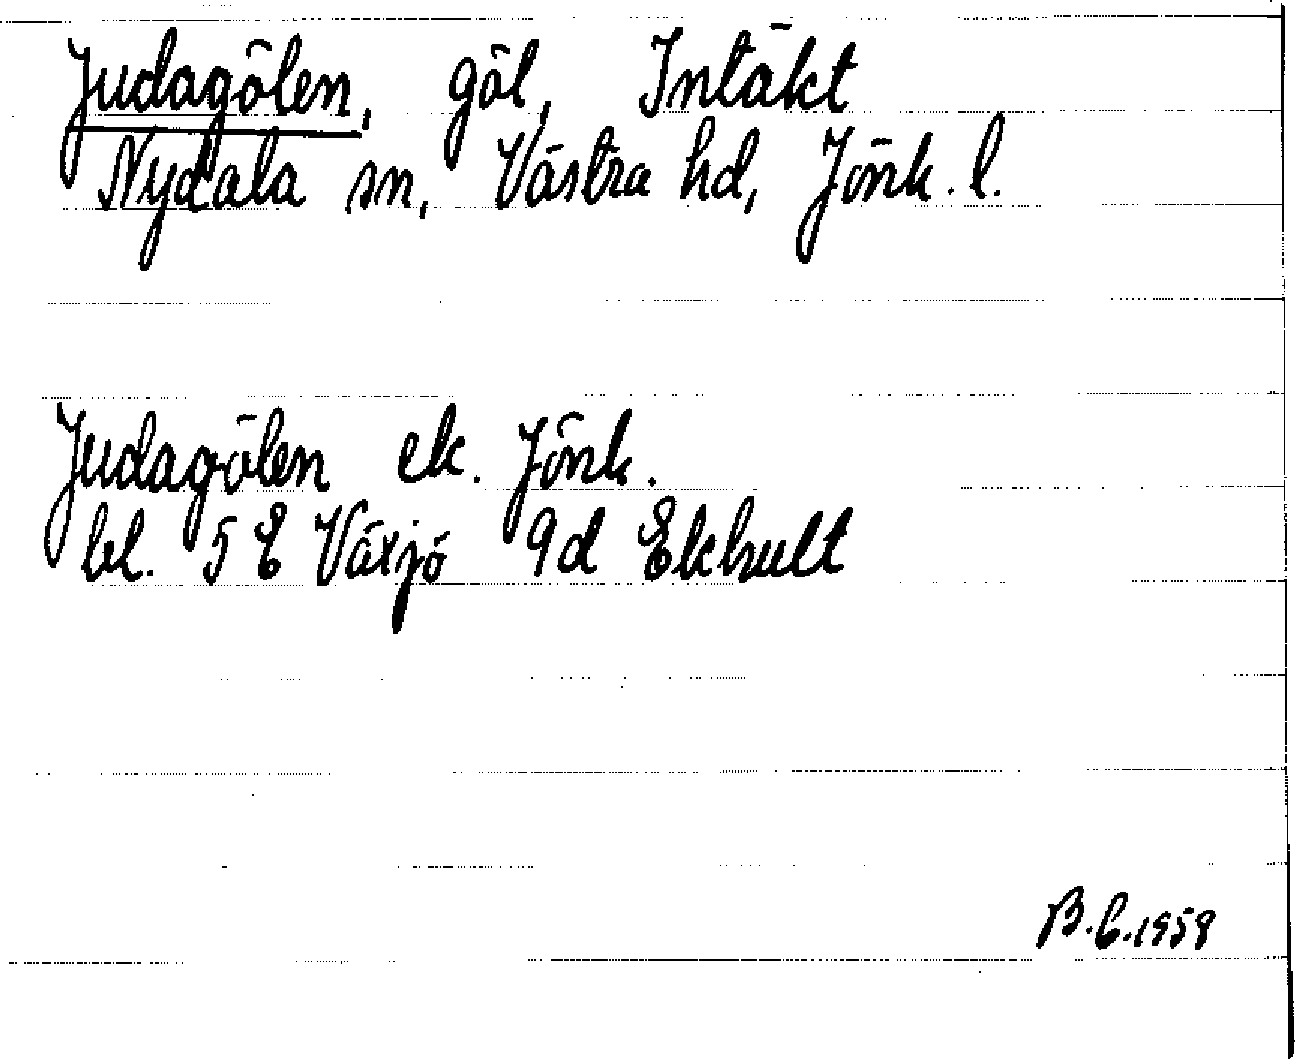 Judagölen, göl, Intäkt
Nydala sn, Västra hd, Jönk. l.
Judagölen ek. Jönk.
bl. 5 E Växjö 9d Ekhult
B.C. 1959